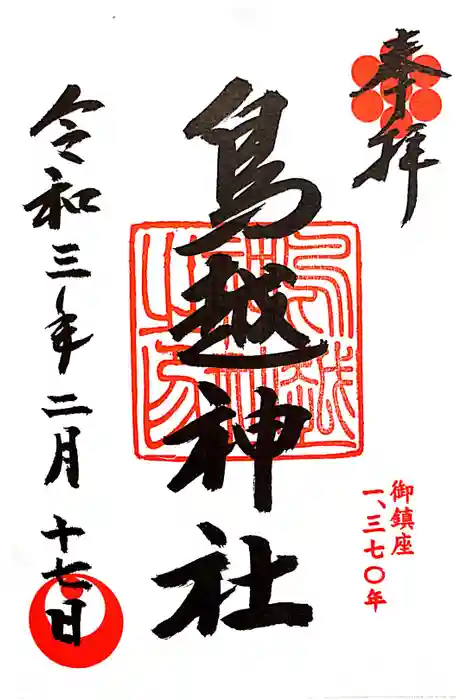 奉拝
鳥越神社
鳥越神社之印
御鎮座
一、三七〇年
令和三年二月十七日